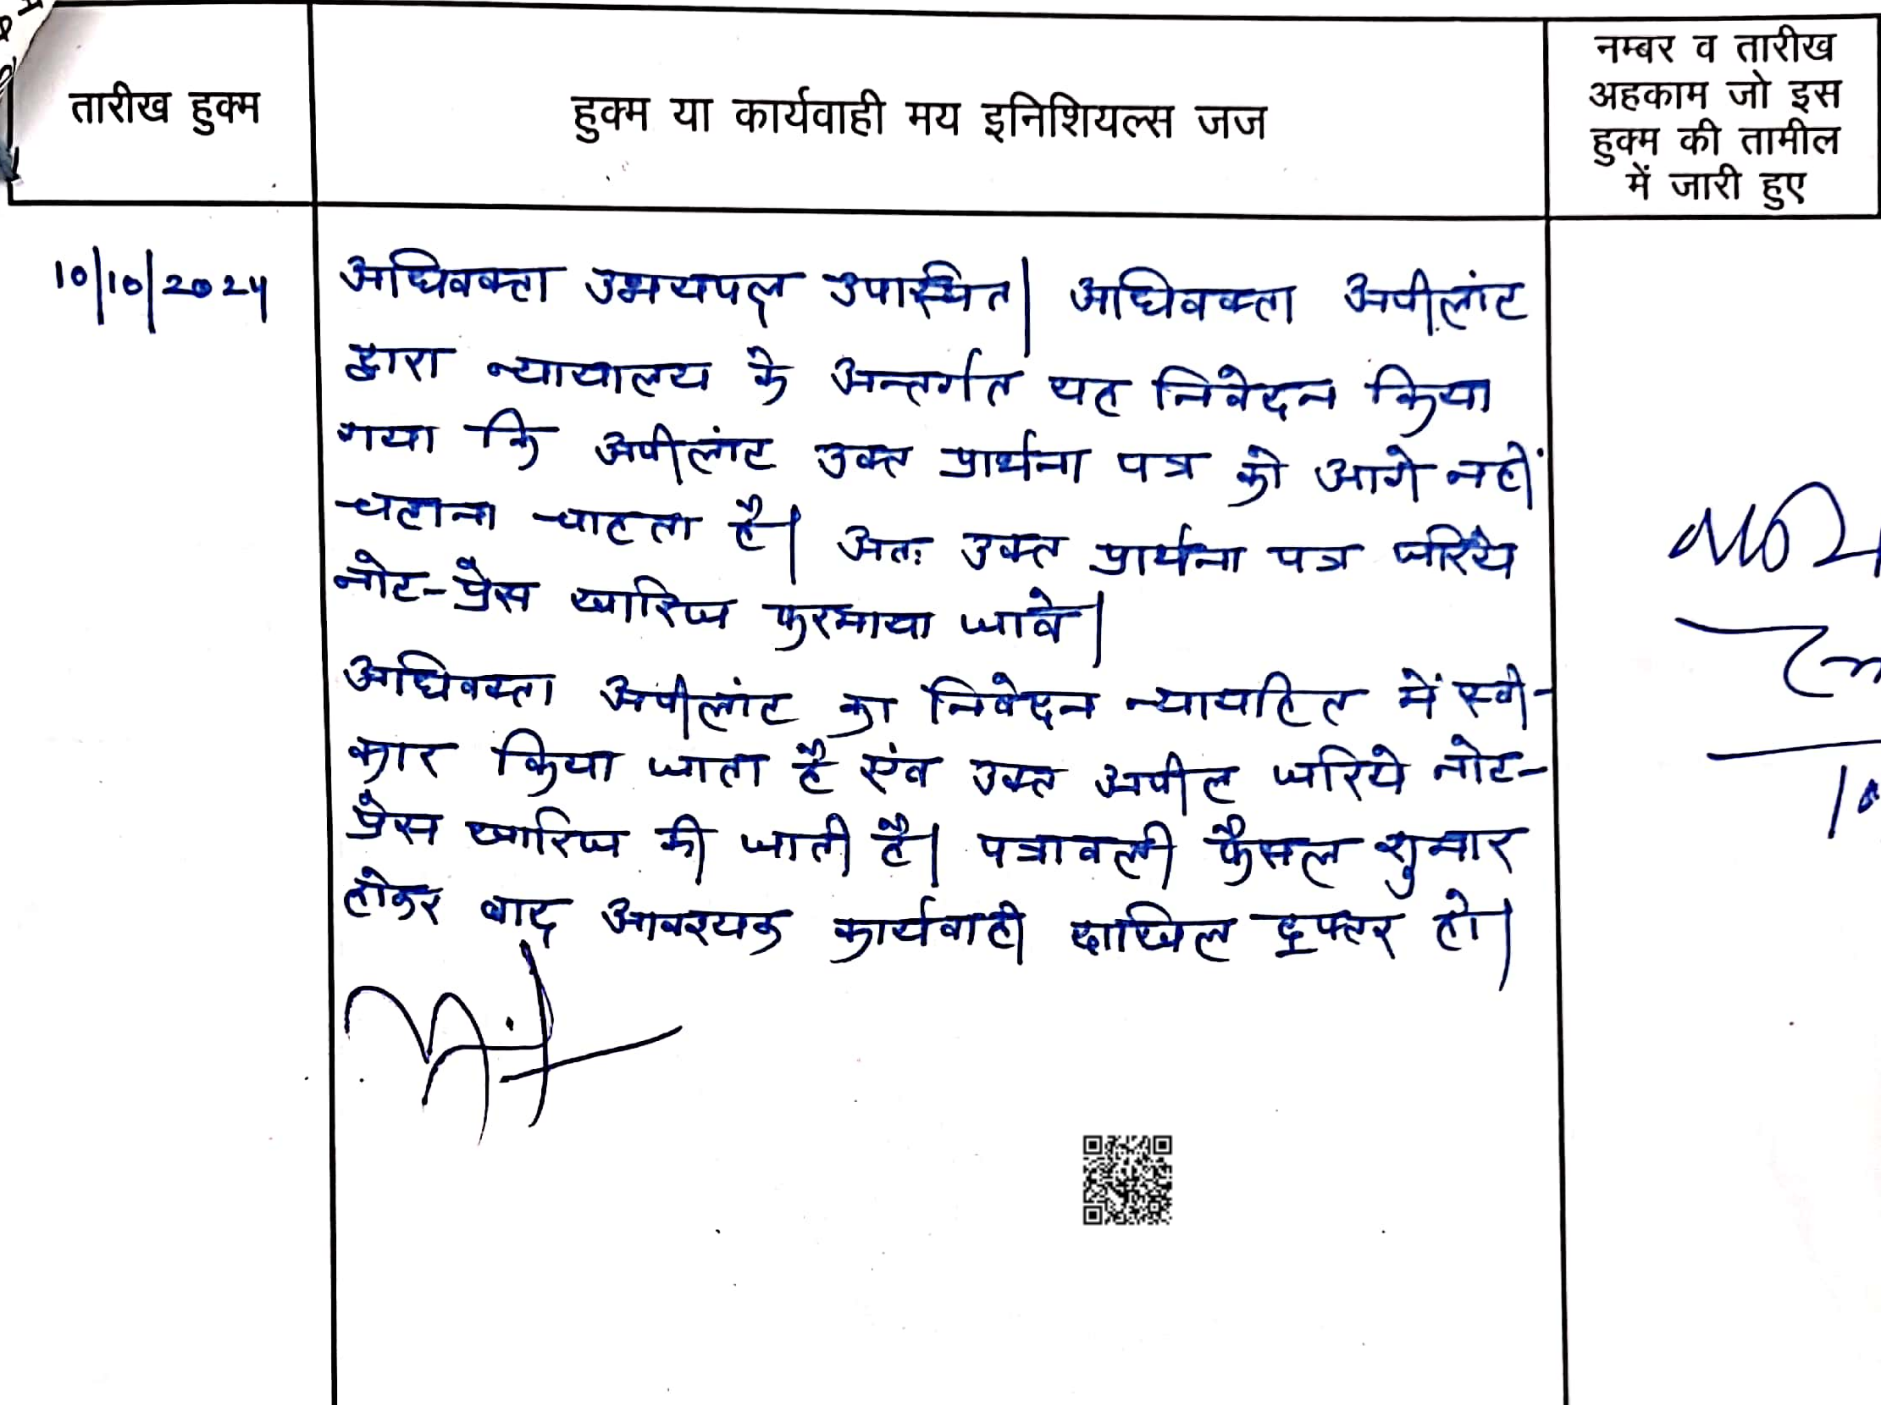 तारीख हुक्म
हुक्म या कार्यवाही मय इनिशियल्स जज
नम्बर व तारीख
अहकाम जो इस
हुक्म की तामील
में जारी हुए
10/10/2024
अधिवक्ता उभयपक्ष उपस्थित। अधिवक्ता अपीलांट
द्वारा न्यायालय के अन्तर्गत यह निवेदन किया
गया कि अपीलांट उक्त प्रार्थना पत्र को आगे नहीं
चलाना चाहता है। अतः उक्त प्रार्थना पत्र जरिये
नोट-प्रेस खारिज फरमाया जावे।
अधिवक्ता अपीलांट का निवेदन न्यायहित में स्वी-
कार किया जाता है एंव उक्त अपील जरिये नोट-
प्रेस खारिज की जाती है। पत्रावली फैसल शुमार
होकर बाद आवश्यक कार्यवाही दाखिल दफ्तर हो।